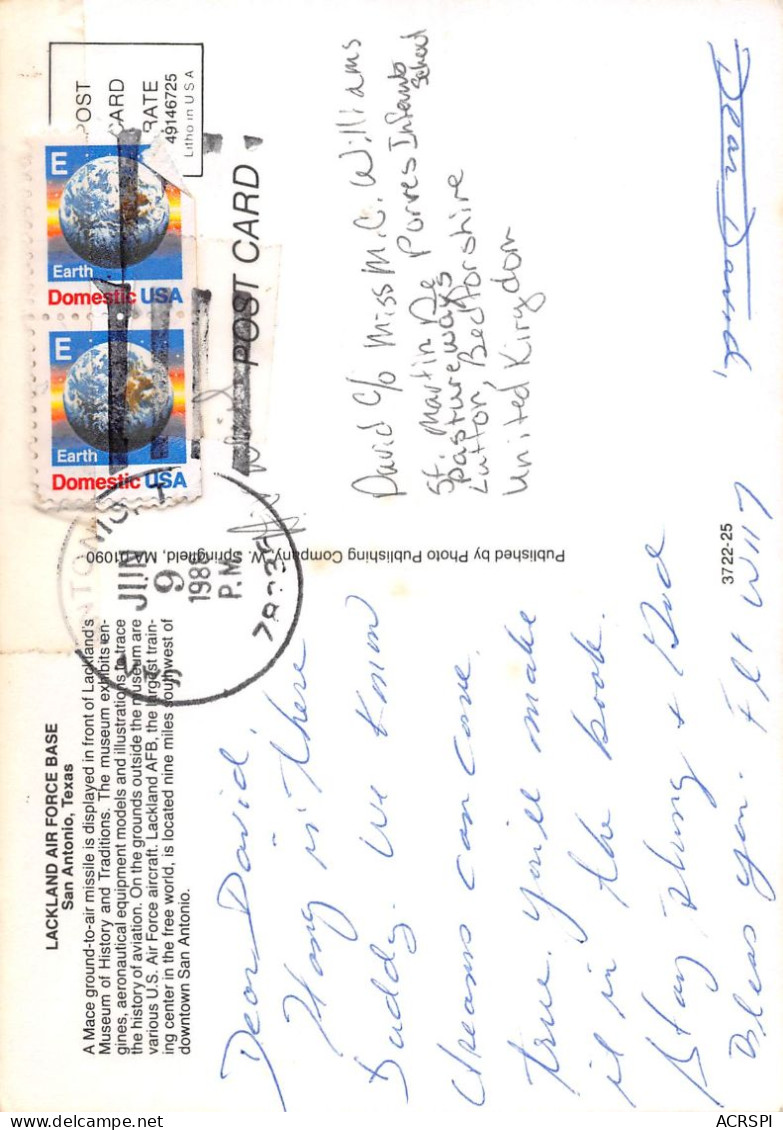 LACKLAND AIR FORCE BASE
San Antonio, Texas
A Mace ground-to-air missile is displayed in front of Lackland's
Museum of History and Traditions. The museum exhibits en-
gines, aeronautical equipment models and illustrations to trace
the history of aviation. On the grounds outside the museum are
various U.S. Air Force aircraft. Lackland AFB, the largest train-
ing center in the free world, is located nine miles southwest of
downtown San Antonio.
Dear David,
Hang in there
Buddy. We know
dreams can come
true. You'll make
it in the book.
Stay strong & God
Bless you. Flt W117
Published by Photo Publishing Company, W. Springfield, MA 01090
3722-25
JUN
9
198
P.M.
POST CARD
POST
CARD
RATE
49146725
Litho in USA
E
Earth
Domestic USA
E
Earth
Domestic USA
David c/o Miss M.C. Williams
St. Martin De Porres Infants
School
Pastureways
Lutton, Bedforshire
United Kingdom
Dear David,
ACRSPI